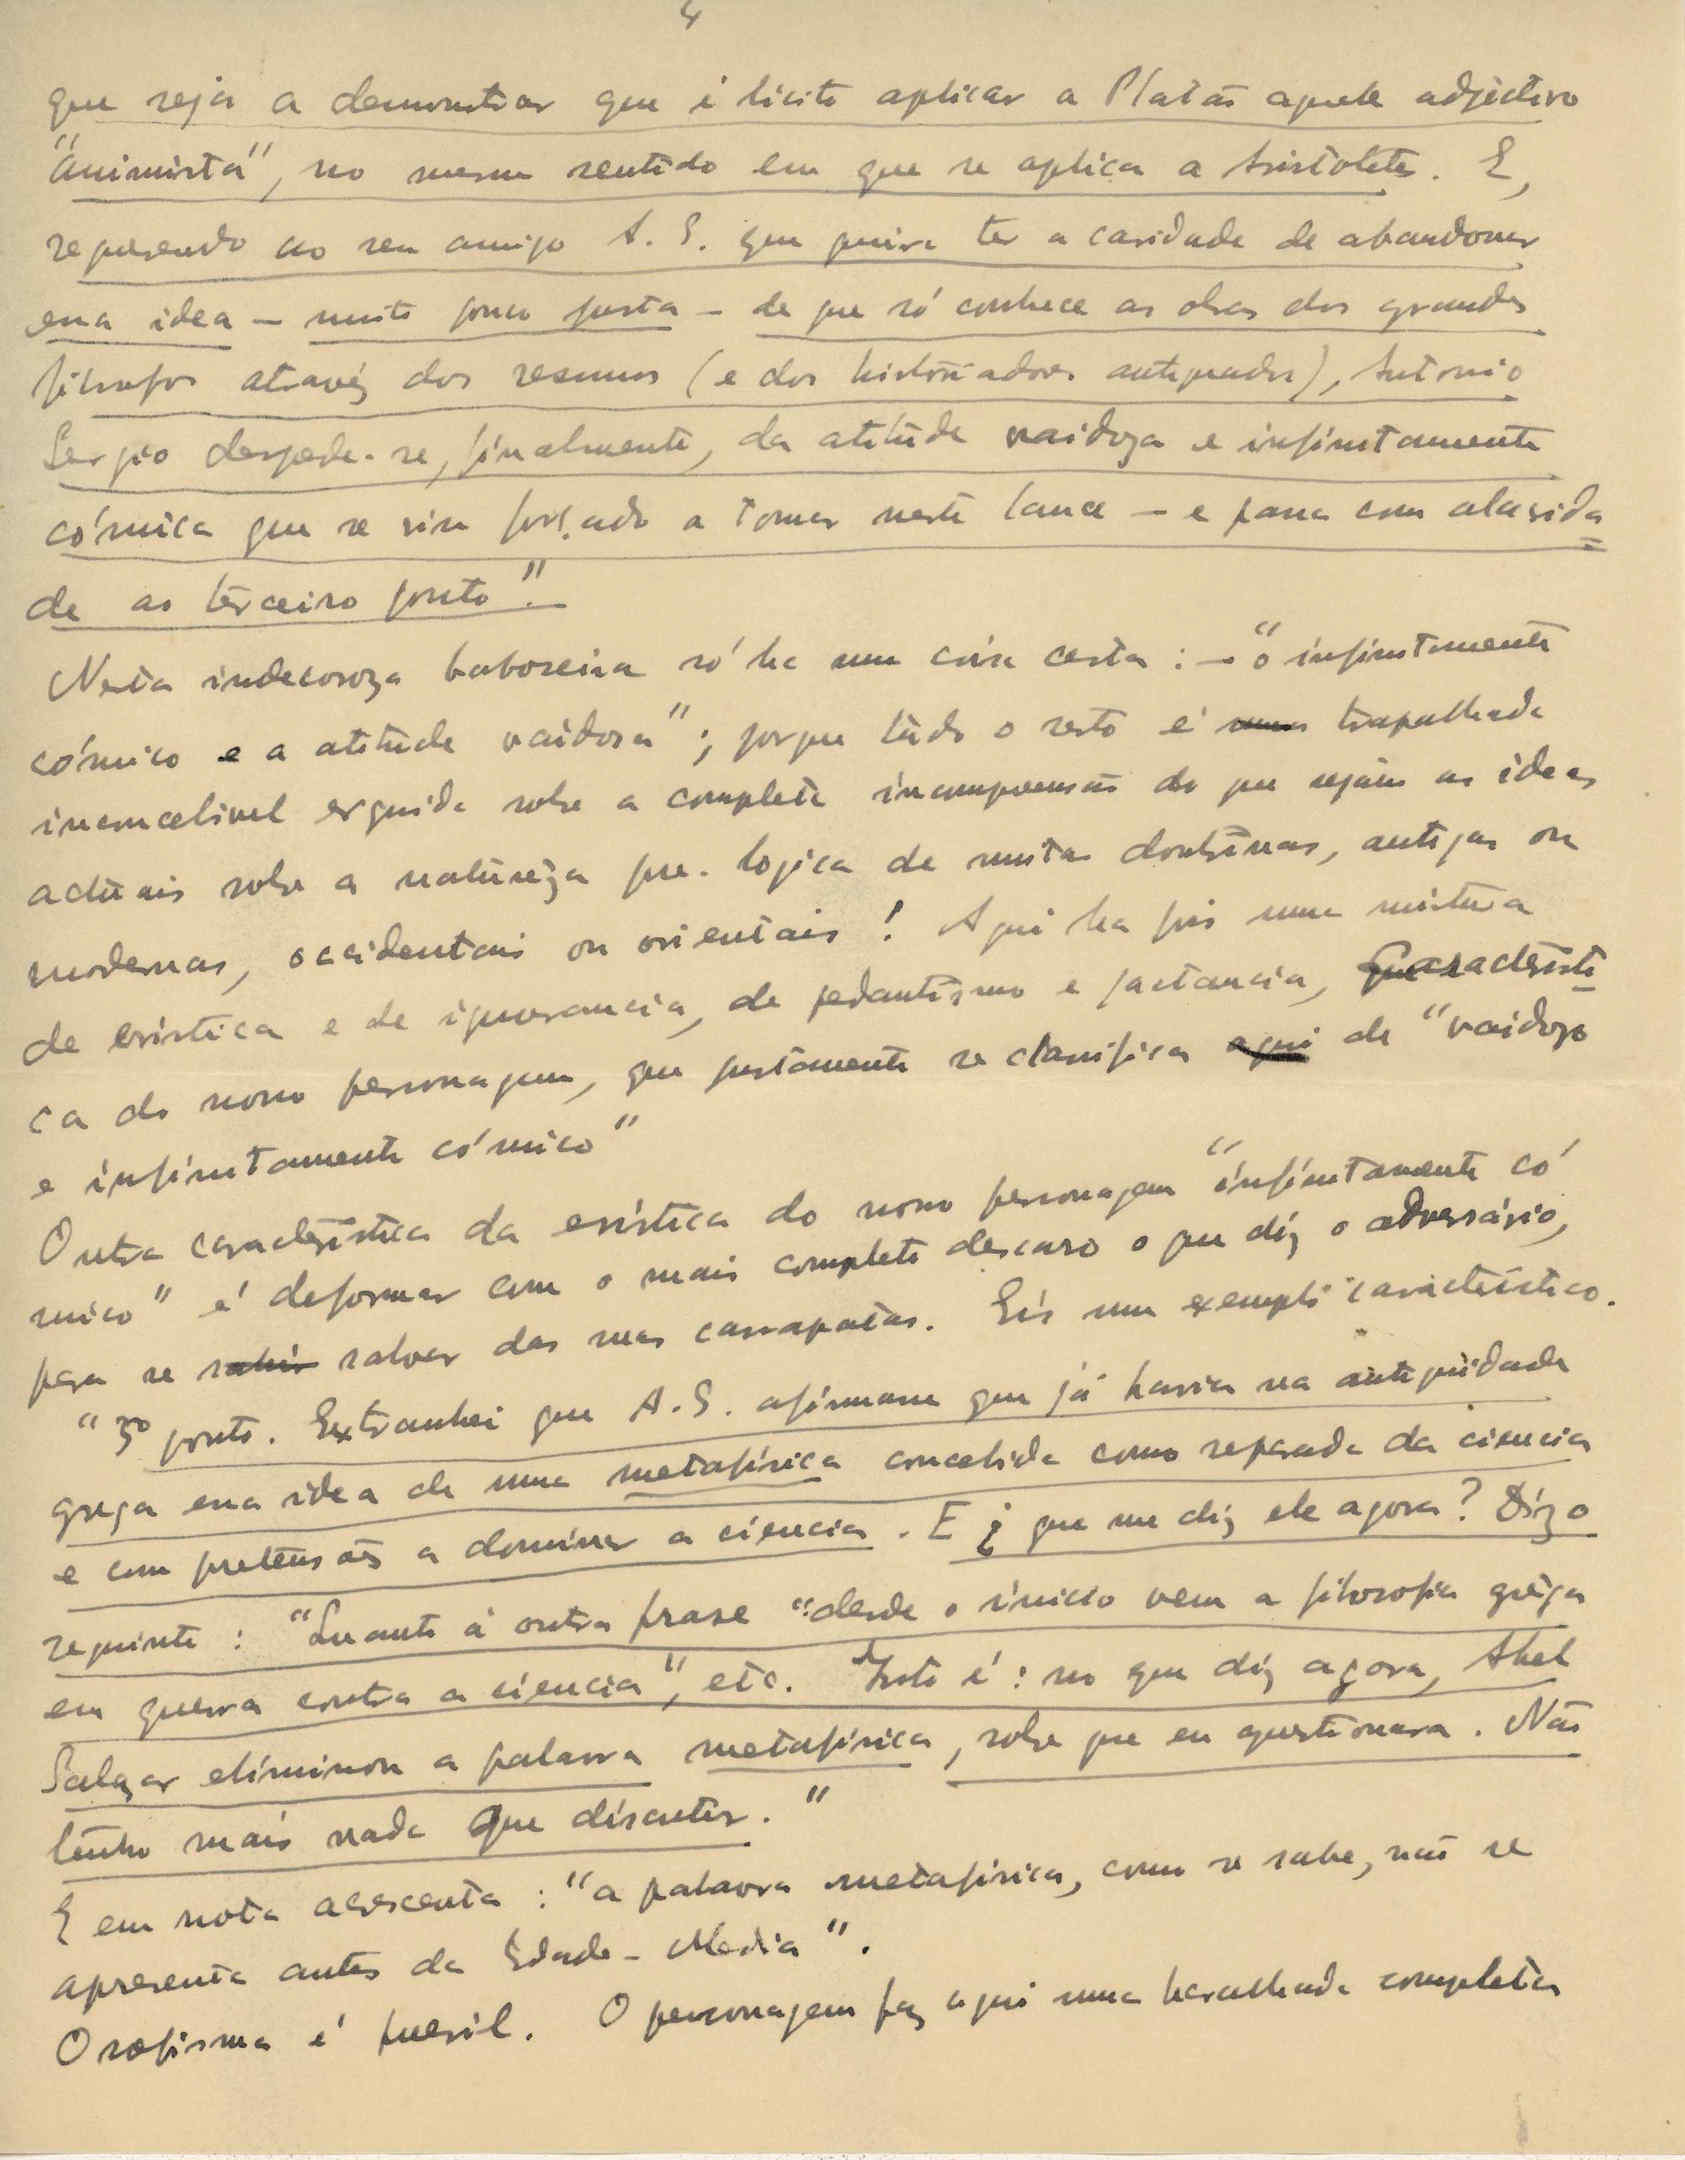 4
que seja a demonstrar que é licito aplicar a Platão aquele adjectivo
"animista", no mesmo sentido em que se aplica a Aristoteles. E,
requerendo ao seu amigo A. S. que queira ter a caridade de abandonar
essa idea – muito pouco justa – de que só conhece as obras dos grandes
filosofos atravéz dos resumos (e dos historiadores antiquados), Antonio
Sergio despede-se, finalmente, da atitude vaidoza e infinitamente
cómica que se viu forçado a tomar neste lance – e passa com alacrida
de ao terceiro ponto."
Nesta indecoroza baboseira só ha uma coisa certa: – "o infinitamente
cómico e a atitude vaidosa"; porque tudo o resto é uma trapalhada
inconcebivel erguida sobre a completa incompreensão do que sejam as ideas
actuais sobre a natureza pre-logica de muitas doutrinas, antigas ou
modernas, occidentais ou orientais! Aqui ha pois uma mistura
de eristica e de ignorancia, de pedantismo e jactancia, caracteristi
ca do nosso personagem, que justamente se classifica aqui de "vaidozo
e infinitamente cómico"
Outra caracteristica da eristica do nosso personagem "infinitamente có
mico" é deformar com o mais completo descaro o que diz o adversário,
para se sahir salvar das suas carrapatas. Eis um exemplo caracteristico.
"3º ponto. Extranhei que A. S. afirmasse que já havia na antiguidade
grega essa idea de uma metafisica concebida como separada da ciencia
e com pretensões a dominar a ciencia. E ¿ que me diz ele agora? Diz o
seguinte: "Quanto á outra frase "desde o inicio vem a filosofia gréga
em guerra contra a ciencia", etc. Isto é: no que diz agora, Abel
Salazar eliminou a palavra metafisica, sobre que eu questionara. Não
tenho mais nada que discutir."
E em nota acrescenta: "a palavra metafisica, como se sabe, não se
apresenta antes da Edade-Media".
O sofisma é pueril. O personagem faz aqui uma baralhada completa